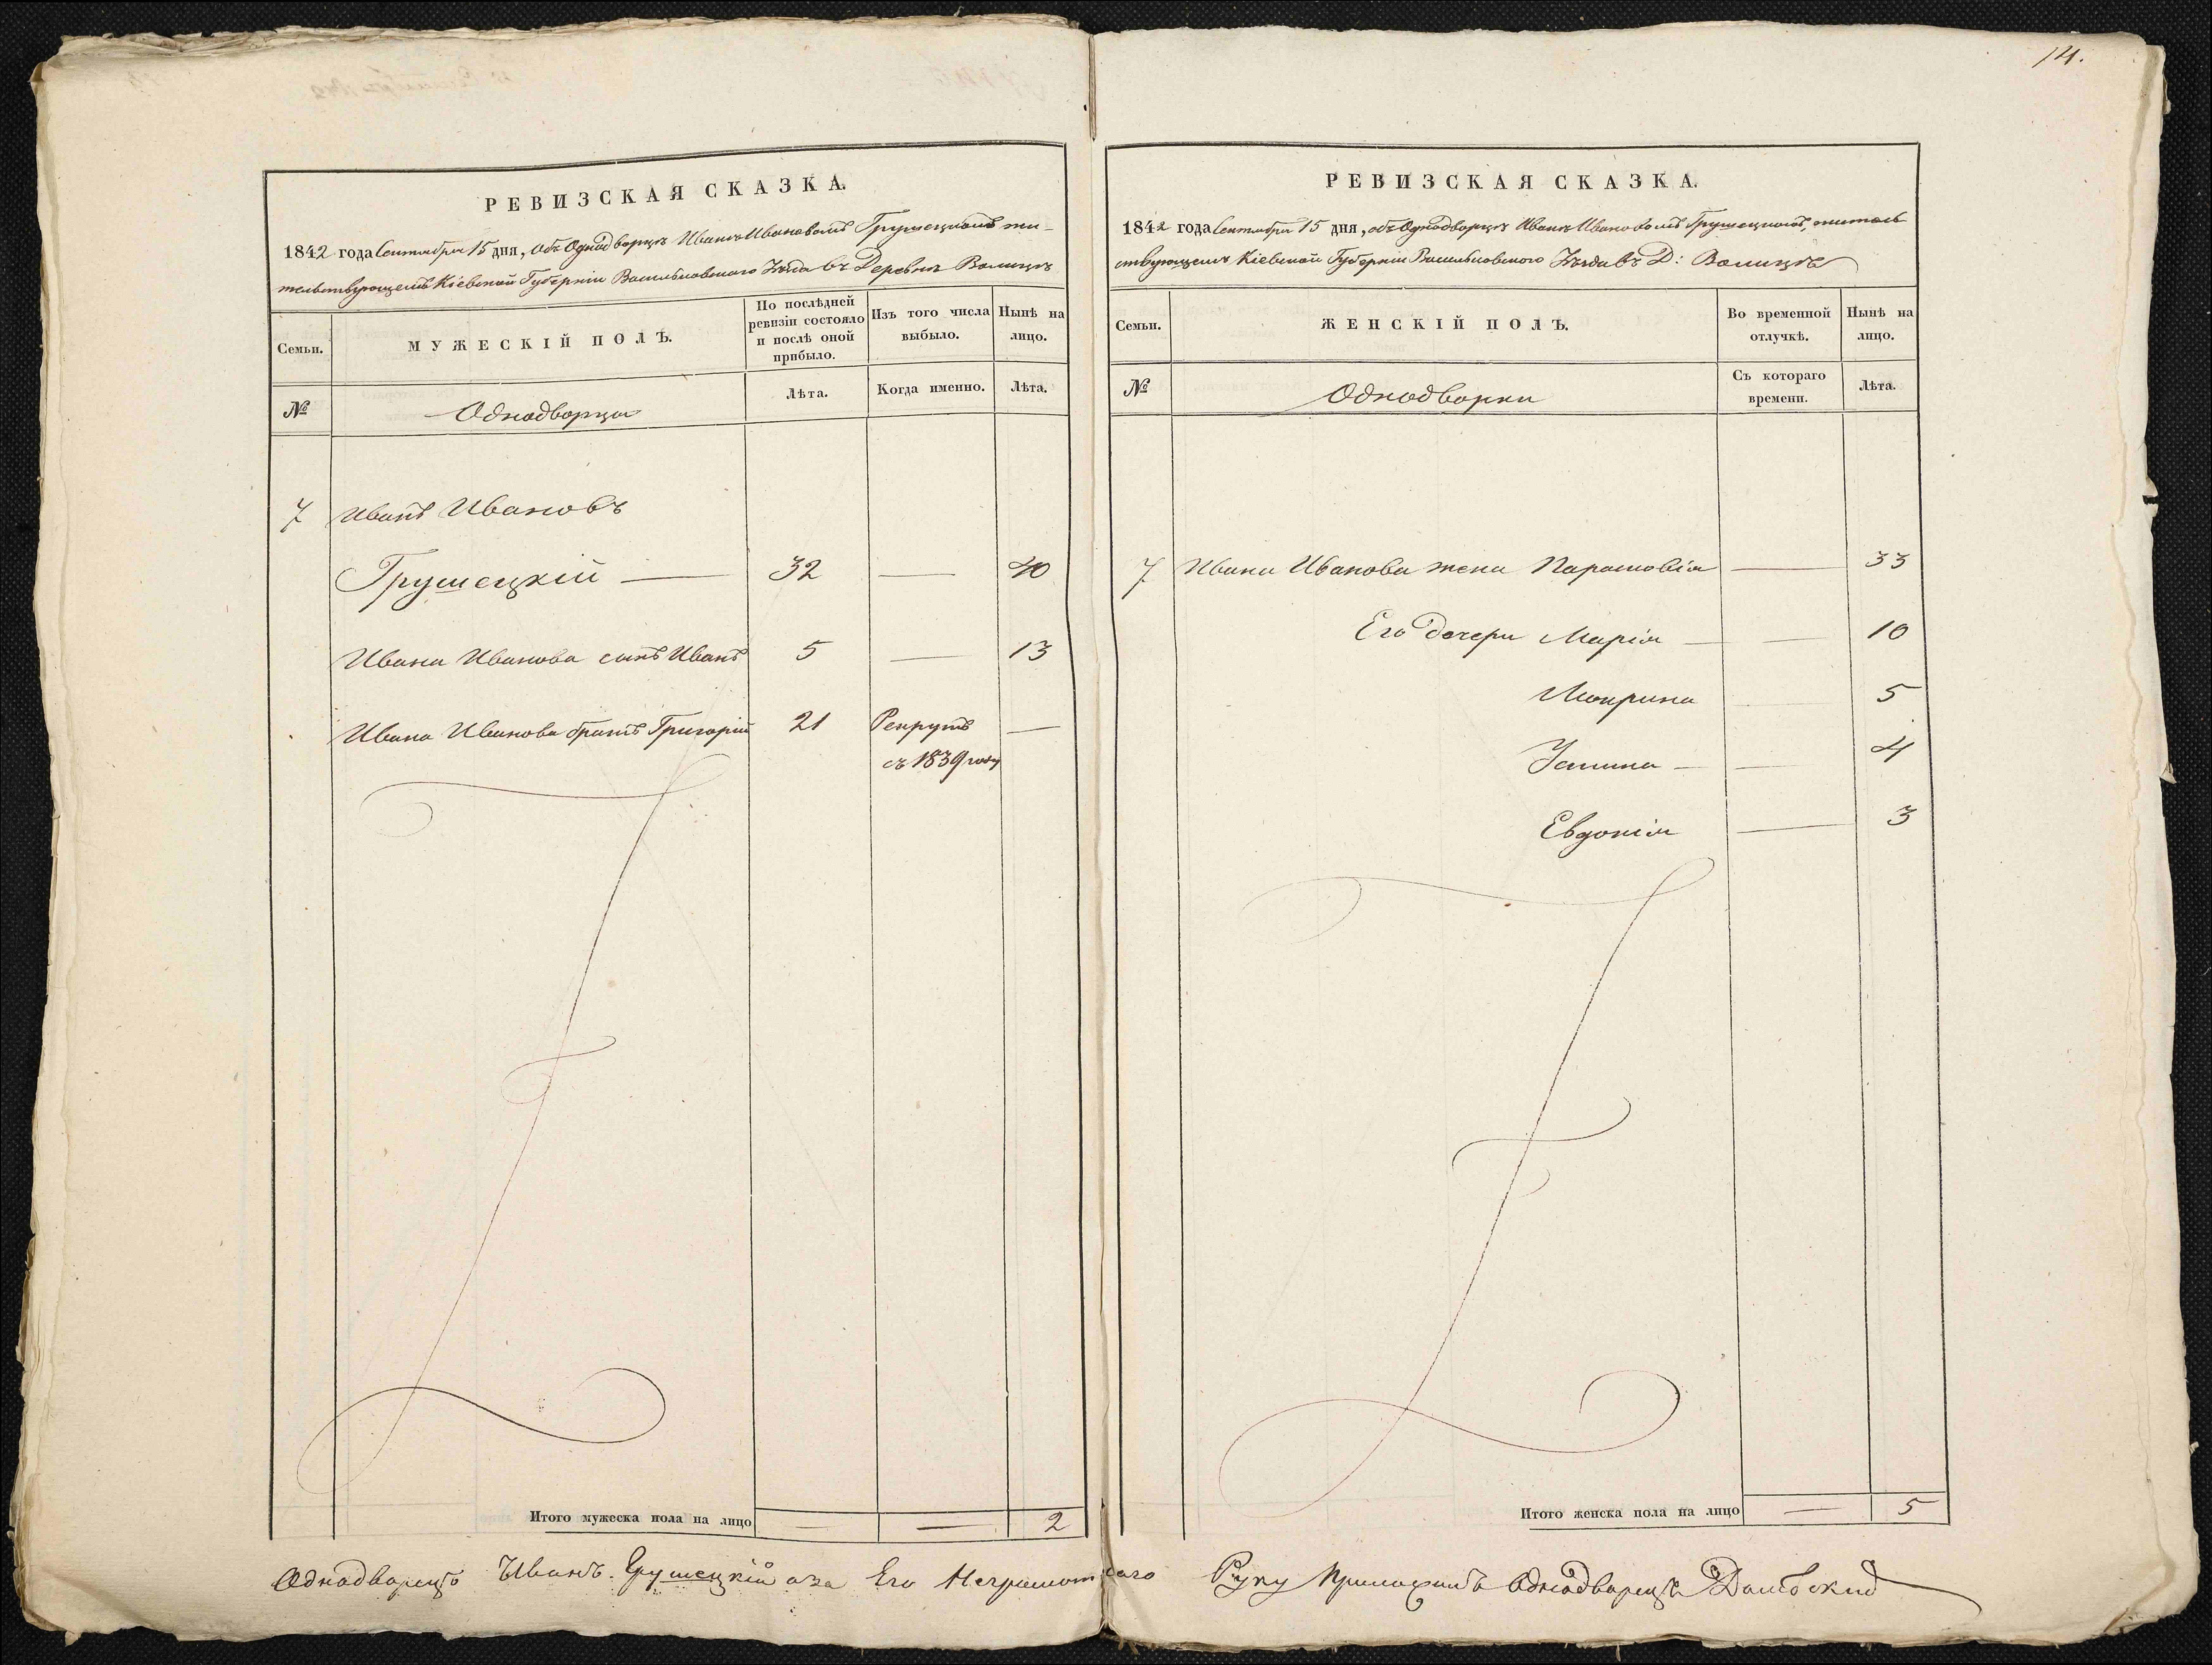 14.
РЕВИЗСКАЯ СКАЗКА.
1842 года Сентября 15 дня, объ Однодворцѣ Иванѣ Ивановомъ Грушецкомъ жи-
тельствующемъ Кіевской Губерніи Васильковскаго Уѣзда въ Деревнѣ Волицѣ
Семьи.
МУЖЕСКІЙ ПОЛЪ.
По послѣдней
ревизіи состояло
и послѣ оной
прибыло.
Изъ того числа
выбыло.
Нынѣ на
лицо.
№
Однодворцы
Лѣта.
Когда именно.
Лѣта.
7 Иванъ Ивановъ
Грушецкій — 32 — 40
Ивана Иванова сынъ Иванъ 5 — 13
Ивана Иванова братъ Григорій 21 Рекрутъ —
съ 1839 году
Итого мужеска пола на лицо — — 2
РЕВИЗСКАЯ СКАЗКА.
1842 года Сентября 15 дня, объ Однодворцѣ Иванѣ Ивановомъ Грушецкомъ, житель
ствующемъ Кіевской Губерніи Васильковского Уѣзда въ Д: Волицѣ
Семьи.
ЖЕНСКІЙ ПОЛЪ.
Во временной
отлучкѣ.
Нынѣ на
лицо.
№
Однодворки
Съ котораго
времени.
Лѣта.
7 Ивана Иванова жена Парасковія — 33
Его дочери Марія — — 10
Мокрина — 5
Устина — — 4
Евдокія — 3
Итого женска пола на лицо — 5
Однодворецъ Иванъ Грушецкій аза Его Неграмотнаго Руку Приложилъ Однодворецъ